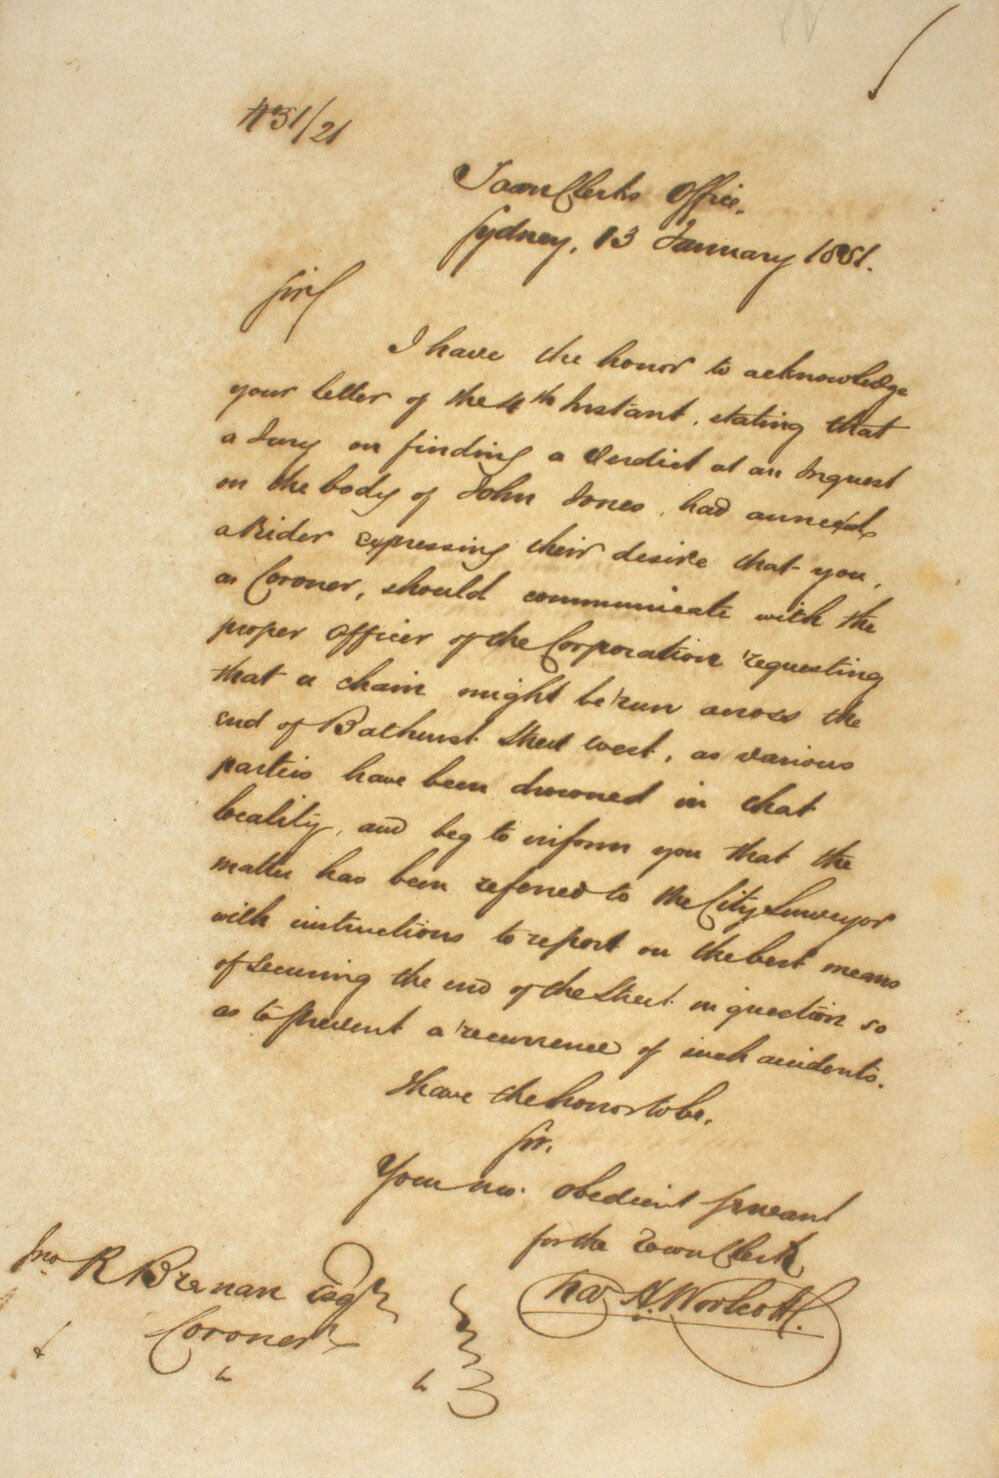 No 31/21
Town Clerks Office.
Sydney, 13 January 1851.
Sir
I have the honor to acknowledge
your letter of the 4th Instant, stating that
a Jury on finding a Verdict at an Inquest
on the body of John Jones, had annexed
a Rider expressing their desire that you,
as Coroner, should communicate with the
proper Officer of the Corporation requesting
that a chain might be run across the
end of Bathurst Street West, as various
parties have been drowned in that
locality, and beg to inform you that the
matter has been referred to the City Surveyor
with instructions to report on the best means
of securing the end of the Street in question so
as to prevent a recurrence of such accidents.
I have the honor to be,
Sir,
Your mo. obedient Servant
for the Town Clerk
Chas H. Woolcott.
Jno. R Brenan Esqr
Coroner
" "